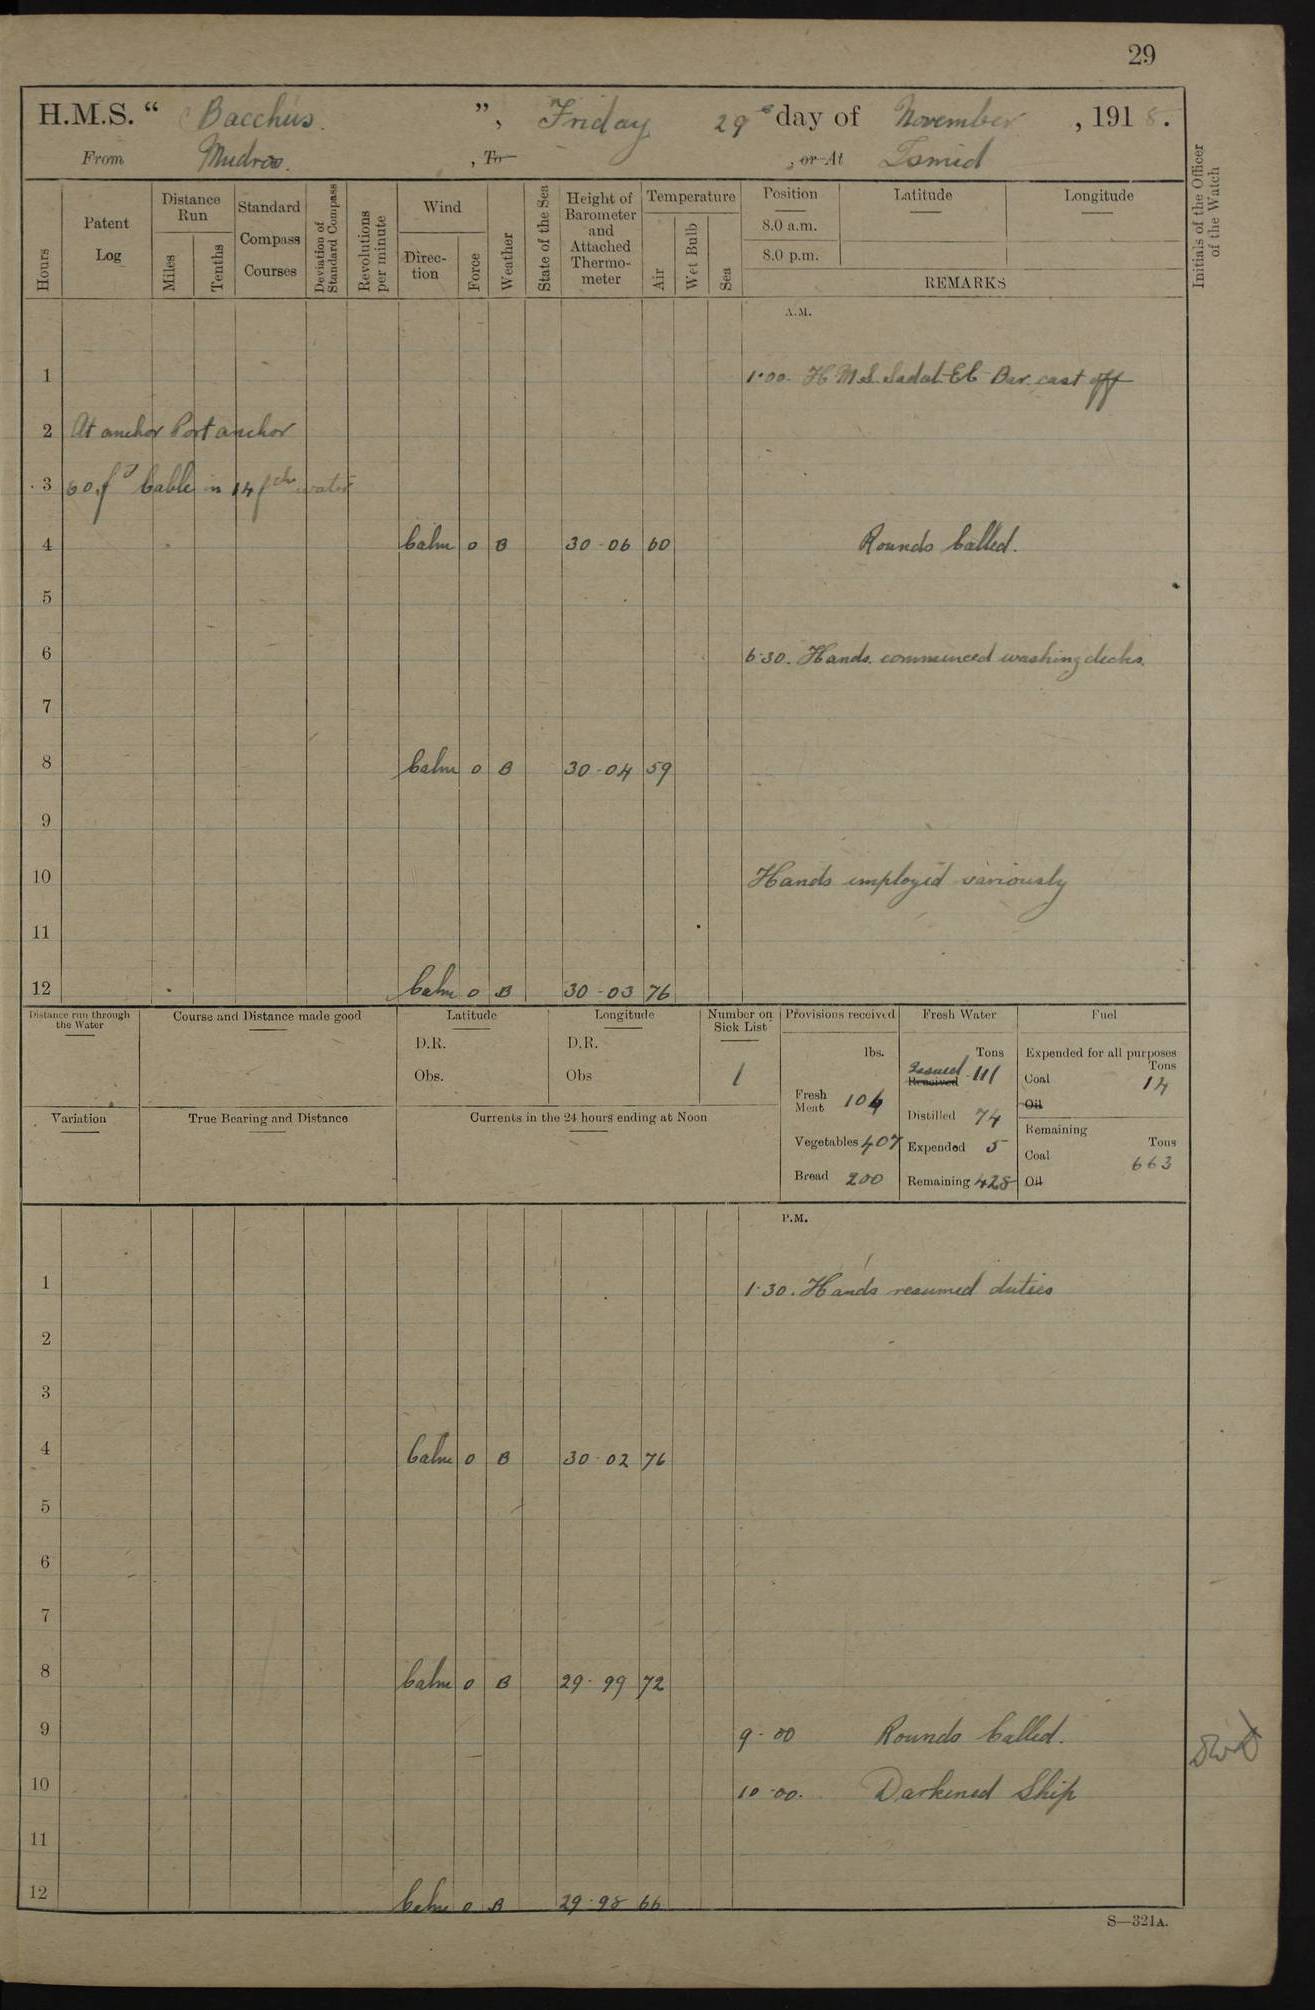 29
H.M.S. “ Bacchus. ”, Friday 29th day of November, 1918.
From Mudros. , To , or At Ismid
Hours
Patent Log
Distance Run
Miles
Tenths
Standard Compass Courses
Deviation of Standard Compass
Revolutions per minute
Wind
Direc-tion
Force
Weather
State of the Sea
Height of Barometer and Attached Thermo-meter
Temperature
Air
Wet Bulb
Sea
Position
8.0 a.m.
8.0 p.m.
Latitude
Longitude
REMARKS
Initials of the Officer of the Watch
A.M.
1 1·00. H M S. Sadal-El-Bar cast off
2 At anchor Port anchor
3 60 fs Cable in 14 fths water
4 Calm 0 B 30-06 60 Rounds Called.
5
6 6·30. Hands commenced washing decks.
7
8 Calm 0 B 30-04 59
9
10 Hands employed variously
11
12 Calm 0 B 30-03 76
Distance run through the Water
Course and Distance made good
Latitude
D.R.
Obs.
Longitude
D.R.
Obs
Number on Sick List
1
Provisions received
lbs.
Fresh Meat 104
Vegetables 407
Bread 200
Fresh Water
Tons
Issued Received 111
Distilled 74
Expended 5
Remaining 428
Fuel
Expended for all purposes
Tons
Coal 14
Oil
Remaining
Tons
Coal 663
Oil
Variation
True Bearing and Distance
Currents in the 24 hours ending at Noon
P.M.
1 1·30. Hands resumed duties
2
3
4 Calm 0 B 30-02 76
5
6
7
8 Calm 0 B 29-99 72
9 9-00 Rounds Called.
10 10-00. Darkened Ship
11
12 Calm 0 B 29-98 66
S—321A.